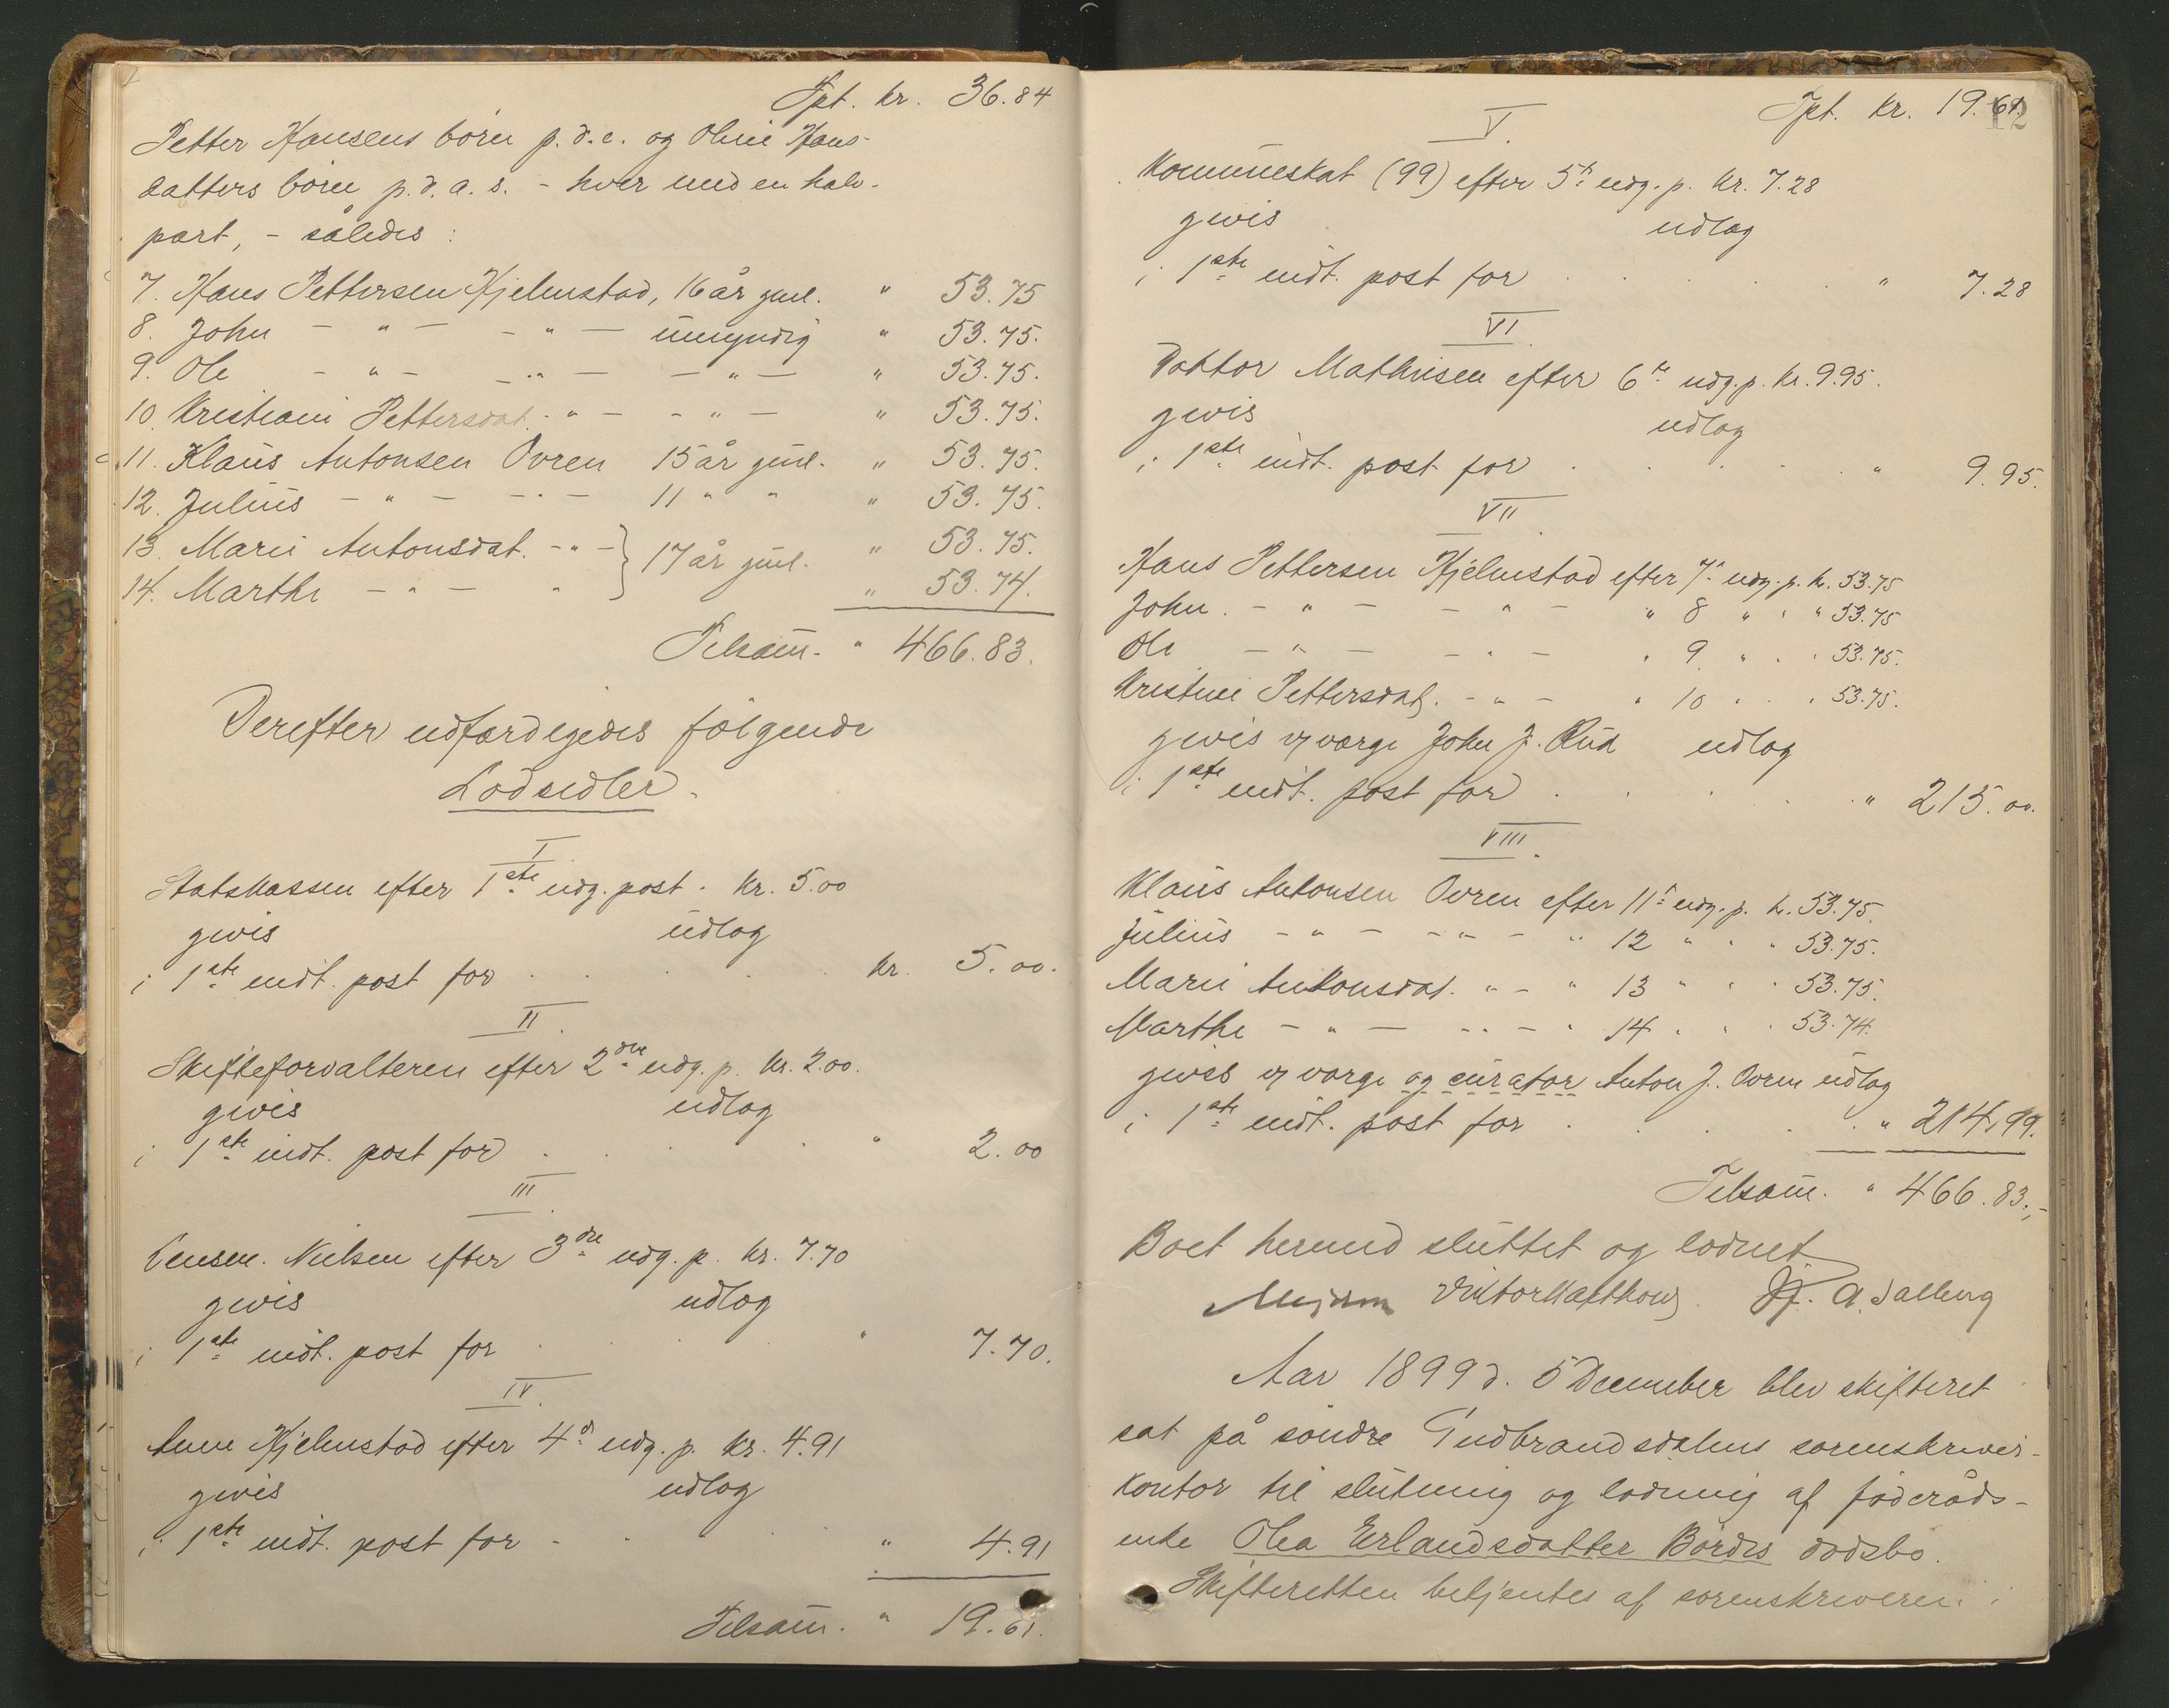 Tpt. kr. 36.84
Petter Hansens børn p.d.e. og Oline Hans-
datters børn p.d.a.s. - hver med en halv-
part, - således:
7. Hans Pettersen Hjelmstad, 16 år gml. " 53.75
8. John - " - - " - umyndig " 53.75.
9. Ole - " - - " - - " - " 53.75.
10. Kristiane Pettersdat. - " - - " - " 53.75.
11. Klaus Antonsen Ovren 15 år gml. " 53.75.
12. Julius - " - - " - 11 " " " 53.75.
13. Marie Antonsdat. - " - } 17 år gml. " 53.75.
14. Marthe - " - " " 53.74.
Tilsam̅. " 466.83.
Derefter udfærdigedes følgende
Lodsedler.
I
Statskassen efter 1ste udg. post. kr. 5.00
gives udlæg
i 1ste indt. post for . . . . kr. 5.00.
II.
Skifteforvalteren efter 2den udg. p. kr. 2.00.
gives udlæg
i 1ste indt. post for . . . " 2.00
III.
Lensm. Nielsen efter 3die udg. p. kr. 7.70
gives udlæg
i 1ste indt. post for . . . " 7.70.
IV.
Anne Hjelmstad efter 4de udg. p. kr. 4.91
gives udlæg
i 1ste indt. post for . . . " 4.91
Tilsam̅. " 19.61.
12
Tpt. kr. 19.61.
V.
Kommuneskat (99) efter 5te udg. p. kr. 7.28
gives udlæg
i 1ste indt. post for . . . . " 7.28
VI.
Doktor Mathiesen efter 6te udg. p. kr. 9.95.
gives udlæg
i 1ste indt. post for . . . . " 9.95.
VII.
Hans Pettersen Hjelmstad efter 7de udg. p. kr. 53.75
John. - " - - " - " 8 " " " 53.75
Ole - " - - " - " 9 " " " 53.75.
Kristine Pettersdat. - " - " 10 " " " 53.75.
gives v værge John J. Rud udlæg
i 1ste indt. post for . . . . " 215.00.
VIII.
Klaus Antonsen Ovren efter 11te udg. p. kr. 53.75.
Julius - " - - " - " 12 " " " 53.75.
Marie Antonsdat. " - " 13 " " " 53.75.
Marthe - " - - " - " 14 " " " 53.74.
gives v værge og curator Anton J. Ovren udlæg
i 1ste indt. post for . . . . " 214.99.
Tilsam̅. " 466.83.,-
Boet hermed sluttet og loddet
A. Dalberg
Aar 1899 d. 5 December blev skifteret
sat på søndre Gudbrandsdalens sorenskriver-
kontor til slutning og lodning af føderåds-
enke Olea Erlandsdatter Bordes dødsbo.
Skifteretten betjentes af sorenskriveren i